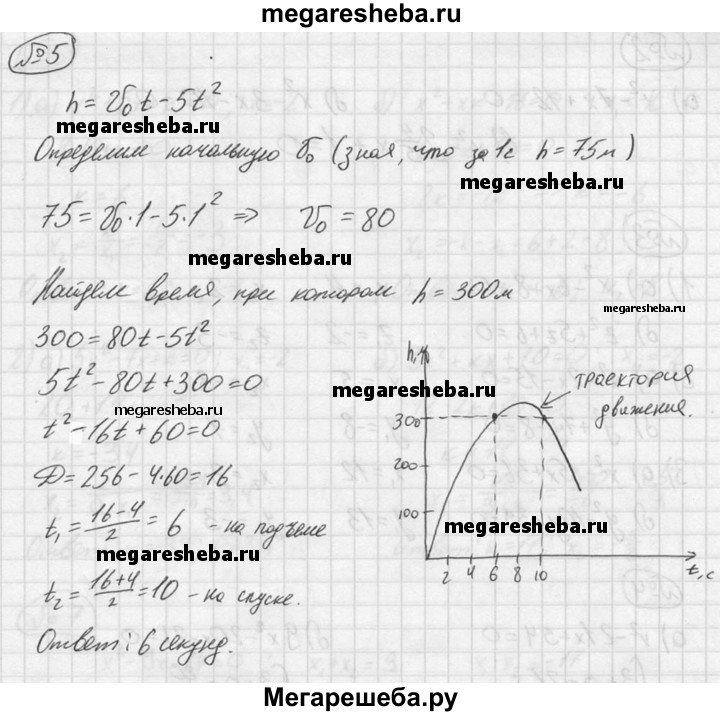 megaresheba.ru
№5
h = v₀t - 5t²
megaresheba.ru
Определим начальную v₀ (зная, что за 1с h = 75м)
megaresheba.ru
75 = v₀·1 - 5·1² ⇒ v₀ = 80
megaresheba.ru
Найдем время, при котором h = 300м
megaresheba.ru
300 = 80t - 5t²
5t² - 80t + 300 = 0
megaresheba.ru
t² - 16t + 60 = 0
Д = 256 - 4·60 = 16
t₁ = (16-4)/2 = 6 - на подъеме
megaresheba.ru
t₂ = (16+4)/2 = 10 - на спуске.
Ответ: 6 секунд.
h, м
megaresheba.ru
траектория
движения.
300
200
100
megaresheba.ru
2 4 6 8 10
t, с
Мегарешеба.ру